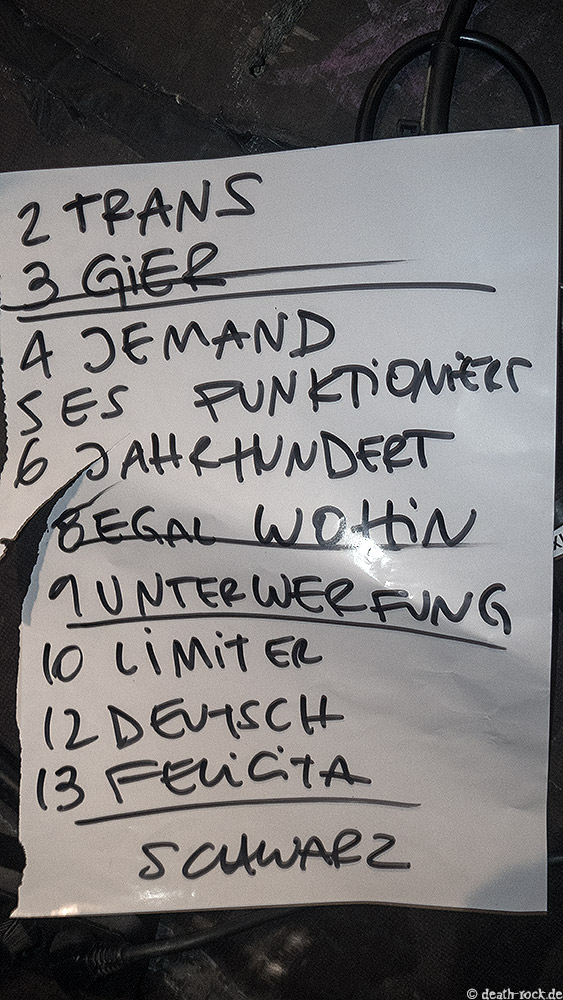 2 TRANS
3 GiER
4 JEMAND
5 ES FUNKTiONiERT
6 JAHRHUNDERT
8 EGAL WOHiN
9 UNTERWERFUNG
10 LiMiTER
12 DEUTSCH
13 FELiCiTA
SCHWARZ
© death-rock.de